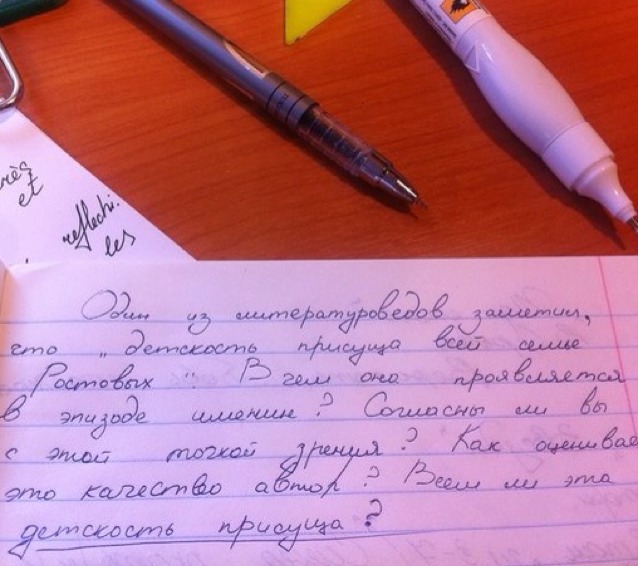 ès
et
reflechi.
les
Один из литературоведов заметил,
что „детскость присуща всей семье
Ростовых". В чем она проявляется
в эпизоде именин? Согласны ли вы
с этой точкой зрения? Как оценивае
это качество автор? Всем ли эта
детскость присуща?